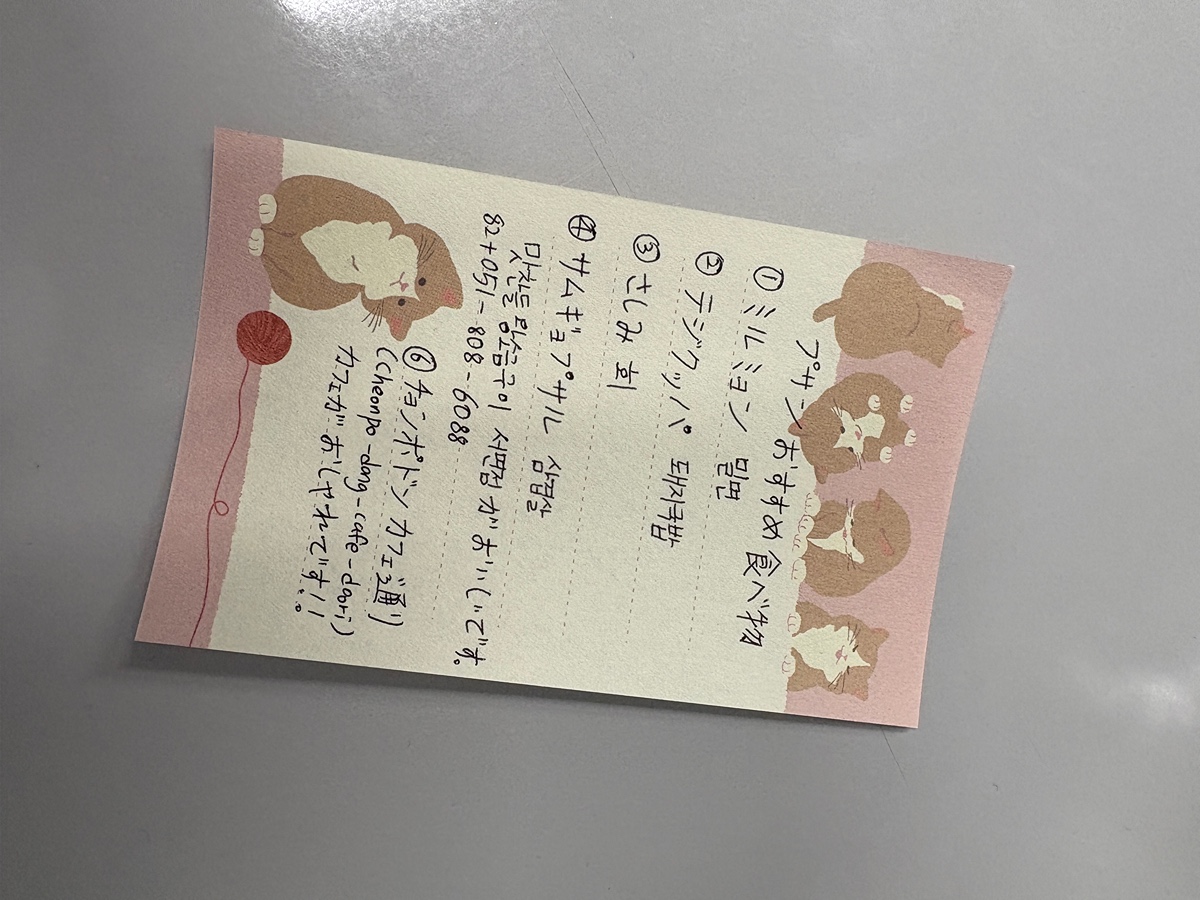 プサン おすすめ 食べ物
① ミルミョン 밀면
② テジクッパ 돼지국밥
③ さしみ 회
④ サムギョプサル 삼겹살
맛찬들 왕소금구이 서면점 がおいしいです。
82+051-808-6088
⑥ チョンポドン カフェ通り
(cheonpo-dong-cafe-doori)
カフェがおしゃれです!!